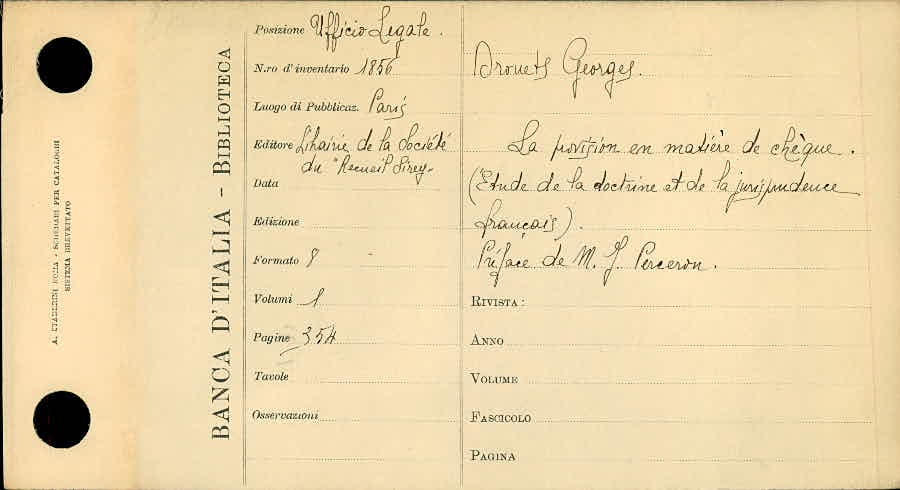 A. STADERINI ROMA - SCHEDARI PER CATALOGHI
SISTEMA BREVETTATO
BANCA D'ITALIA - BIBLIOTECA
Posizione Ufficio Legale.
N.ro d'inventario 1856
Luogo di Pubblicaz. Paris
Editore Libairie de la Société
du "Recueil Sirey"
Data
Edizione
Formato 8
Volumi 1
Pagine 354
Tavole
Osservazioni
Drouets Georges.
La provision en matière de chèque.
(Etude de la doctrine et de la jurisprudence
français).
Préface de M. J. Perceron.
RIVISTA:
ANNO
VOLUME
FASCICOLO
PAGINA